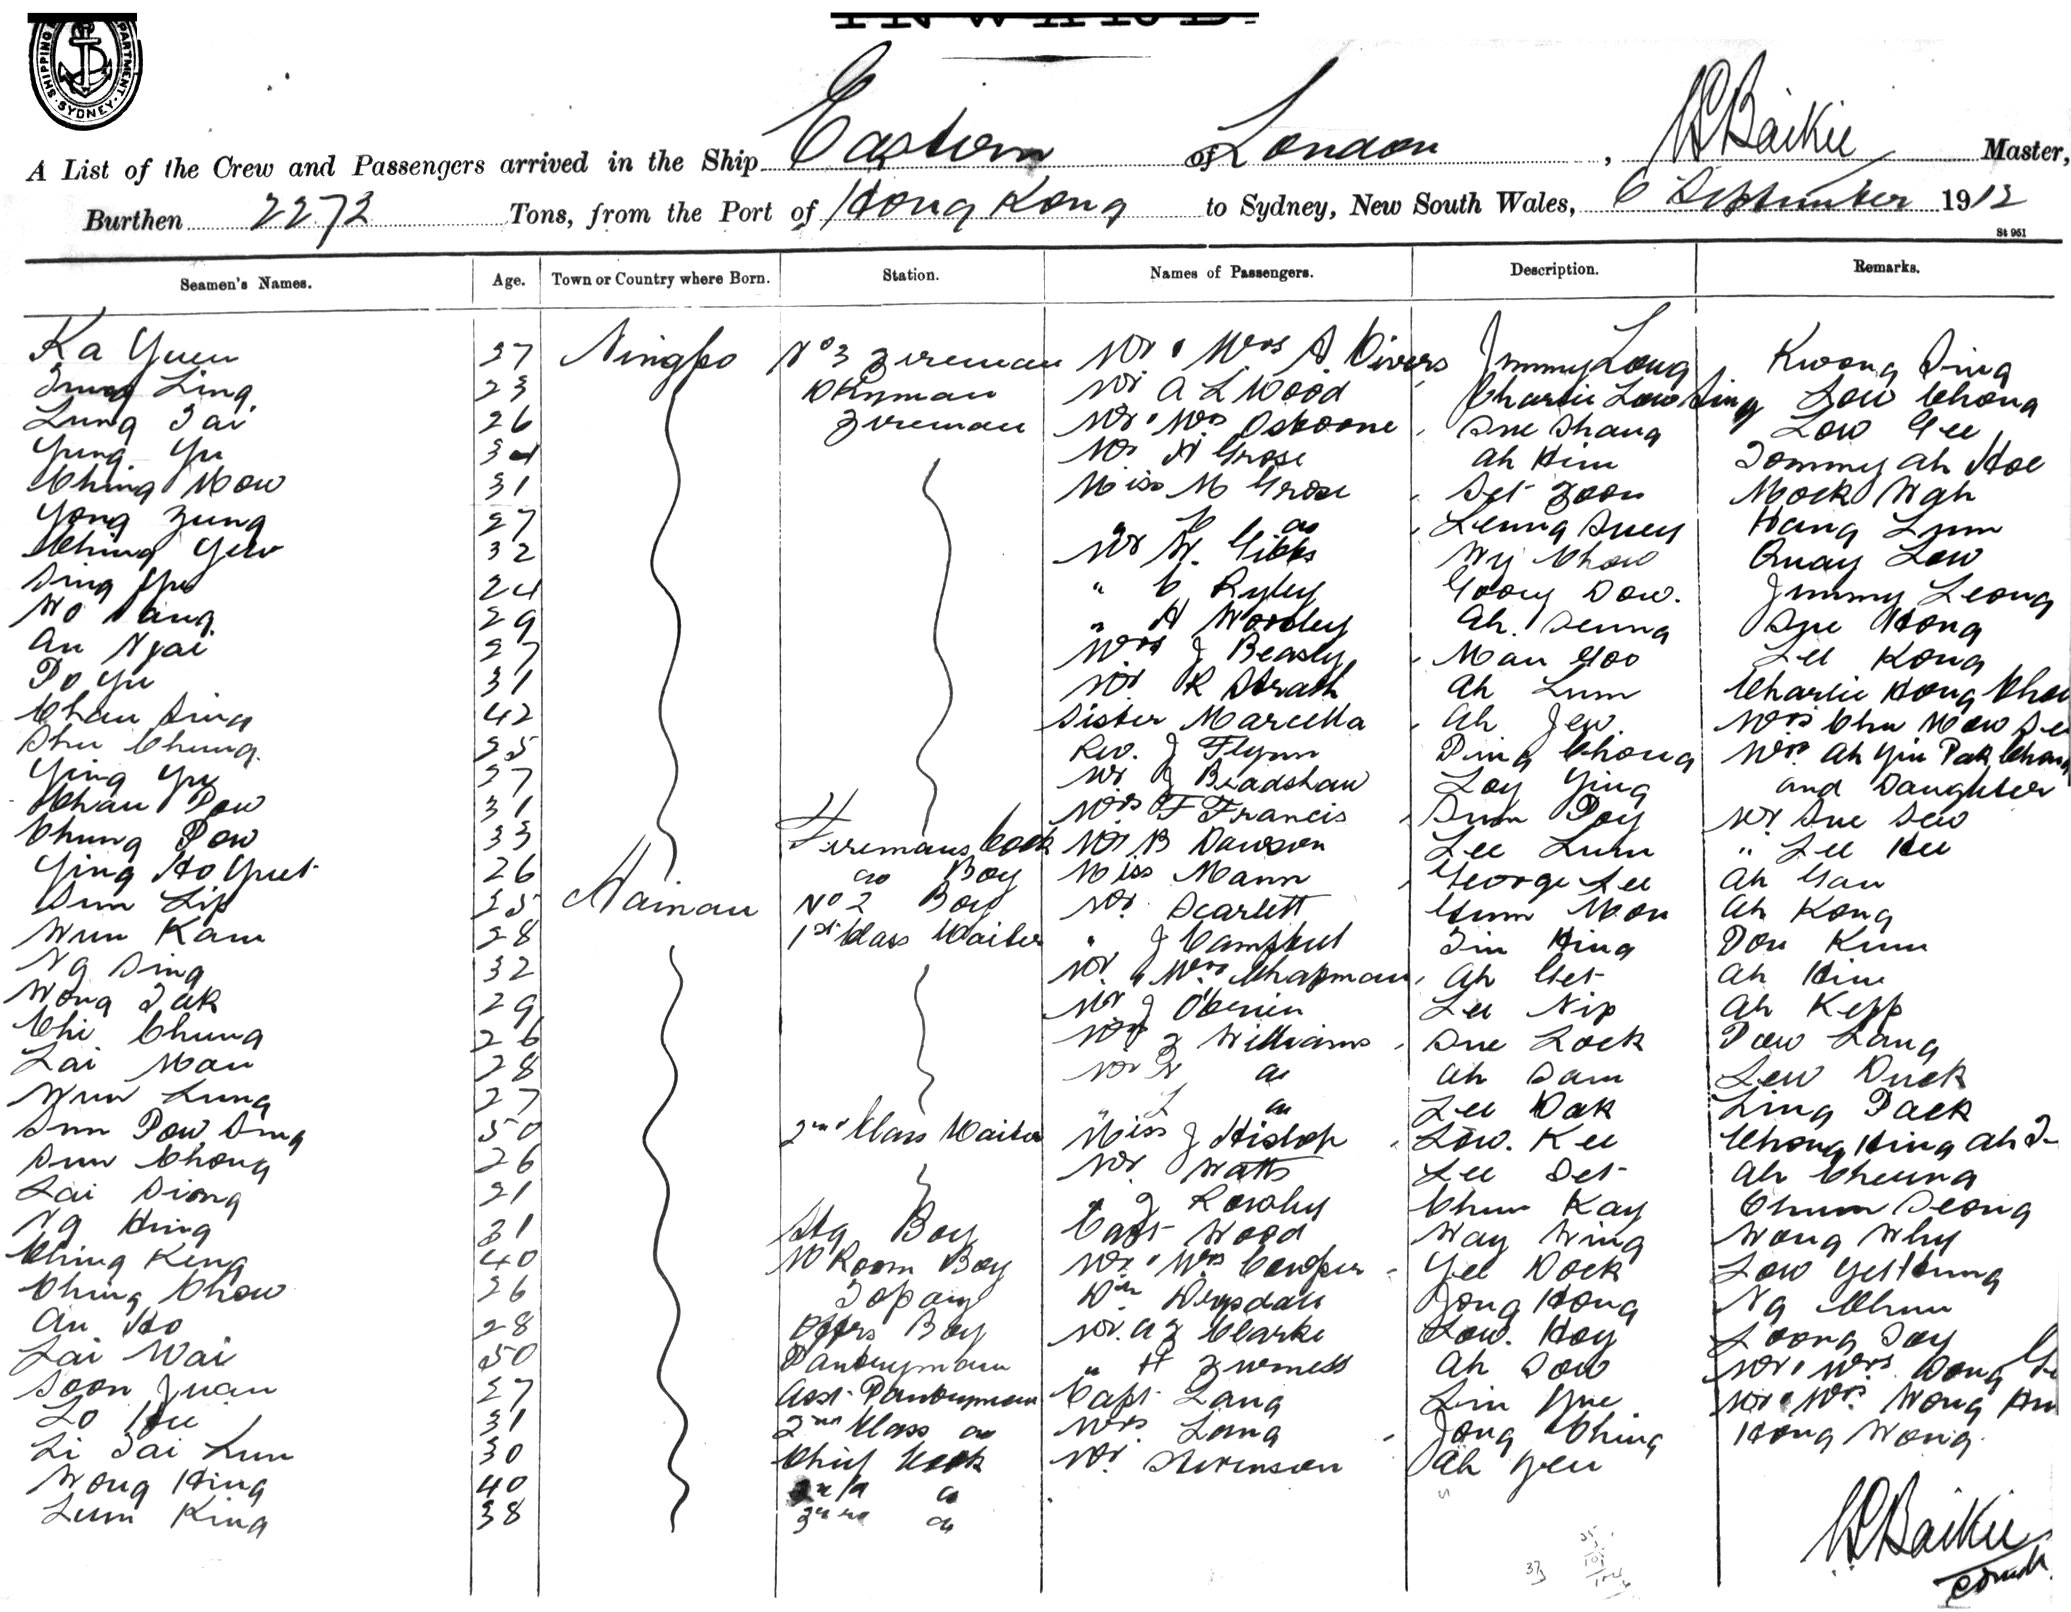 INWARD.
SHIPPING DEPARTMENT. SYDNEY.
A List of the Crew and Passengers arrived in the Ship Eastern of London, Baikie Master,
Burthen 2272 Tons, from the Port of Hong Kong to Sydney, New South Wales, 6 September 1912
St 961
Seamen's Names. Age. Town or Country where Born. Station. Names of Passengers. Description. Remarks.
Ka Yuen 27 Ningpo No 3 Fireman Mr & Mrs A Divers Jimmy Long Kwong Sing
Ling 23 Mr A L Wood Charlie Low Sing Low Chong
Lung Tai 26 Fireman Mr & Mrs Osborne Sue Shang Low Gee
Yung Yu 34 Mr H Grose Ah Him Tommy Ah Hoe
Ching Mow 31 Miss M Grose Set Foon Mock Wah
Yong Fung 27 " C do Leung Suey Hang Lum
Ching Yew 32 Mr W. Gibbs Wy Chow Quay Low
Sing Yu 24 " C Ryley Gooey Dow. Jimmy Leong
Wo Tang 29 " H Worsley Ah. Seung Sue Hong
Au Ngai 27 Mrs J Beasly Man Goo Lee Kong
Po Yu 31 Mr R Strath Ah Lum Charlie Hong
Chau Sing 42 Sister Marcella Ah Jew Mrs Chu Mow
Shu Chung. 25 Rev. J Flynn Ping Chong Mrs Ah Yin Pak
Ying Yu 27 Mr J Bradshaw Loy Ying and Daughter
Chau Pow 31 Mrs F Francis Sum Poy Mr Sue Sew
Chung Pow 33 Firemans Cook Mr B Dawson Lee Lum " Lee Hee
Ying Ho Yuet 26 do Boy Miss Mann George Lee Ah Gau
Sun Lip 25 Hainan No 2 Boy Mr Scarlett Gum Mon Ah Kong
Wun Kam 28 1st Class Waiter " J Campbell Tin Hing Pon Kum
Ng Sing 32 Mr & Mrs Chapman Ah Get Ah Him
Wong Tak 29 Mr J O'Brien Lee Nip Ah Kepp
Chi Chung 26 Williams Sue Lock Pow Lang
Lai Man 28 Mr do Ah Sam Lew Duck
Wun Lung 27 " L do Lee Dak Ling Pack
Sun Pow Sing 50 2nd Class Waiter Miss J Hislop Low. Kee Chong Hing Ah
Sun Chong 26 Mr. Watts Lee Set Ah Cheung
Lai Siong 21 " J Rowley Chun Kay Chum Seong
Ng Hing 31 Stg Boy Capt Wood Way Wing Wong Why
Ching Keng 40 M Room Boy Mr & Mrs Cowper Yee Dock Low
Ching Chow 26 Topaz Jong Hong Ng Chun
Au Ho 28 Offrs Boy Mr. A J Clarke Low. Hoy Loong Toy
Lai Wai 50 Pantryman " H Furness Ah Sow Mr & Mrs Dong
Soon Juan 27 Asst. Pantryman Capt Lang Lin Yue Mr & Mrs Wong
Lo Hee 31 2nd Class do Mrs Lang Jong Ching Hong Wong.
Li Tai Lun 30 Chief Cook Mr Stevenson Ah Yen
Wong Hing 40 2nd do
Lum King 38 3rd do
Baikie
37